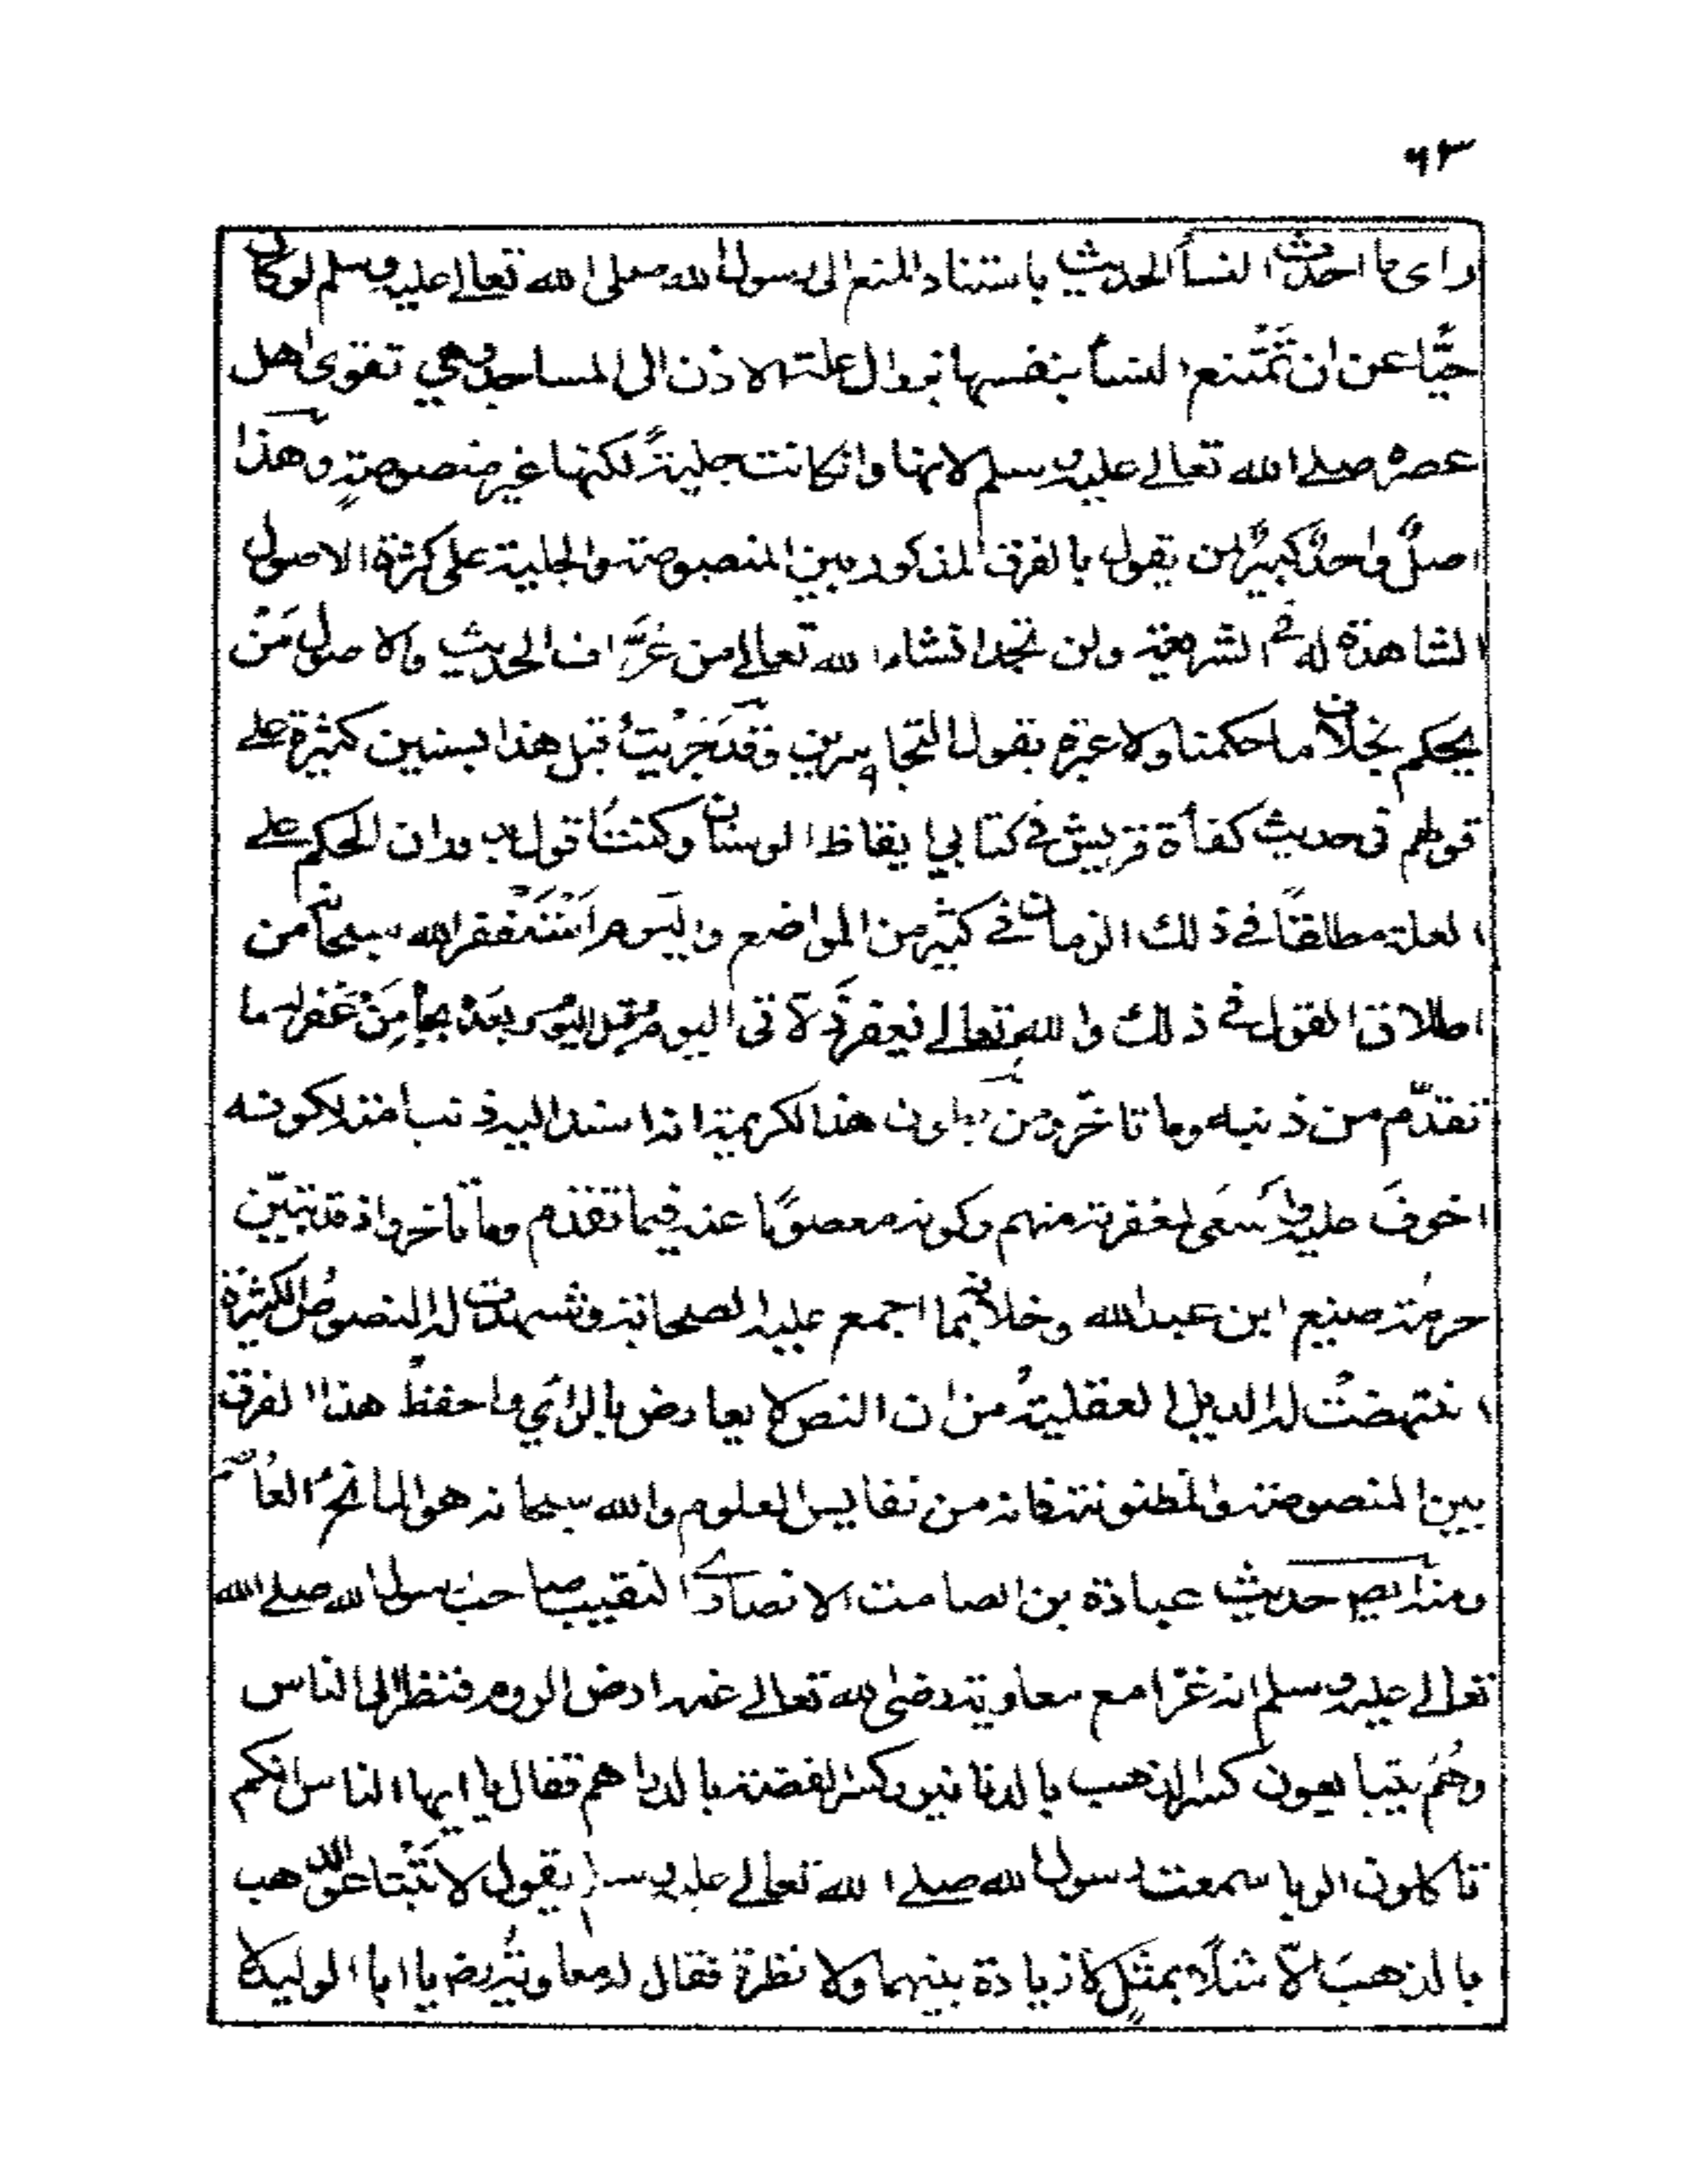 ٦٣
رای ما احدث النسأ الحدیث باستناد المنع الی رسول الله صلی الله تعالے علیه وسلم لوکان
حیًّا عن ان تَمْتنع النسأ بنفسها بزوال علته الاذن الی المساجد وهی تقوی اهل
عصره صلے الله تعالے علیه وسلم لانها وان کانت جلیةً لکنها غیر منصوصةٍ وهذا
اصلٌ واحدٌ کبیرٌ لمن یقول بالفرق المذکور بین المنصوصة والجلیة علی کثرة الاصول
الشاهدة له فی الشریعة ولن تجد انشاء الله تعالے من عُرَّاف الحدیث والاصول مَنْ
یحکم بخلاف ما حکمنا ولا عبرة بقول التجاسرین وقد جَرَیتُ قبل هذا بسنین کثیرة علے
قولهم فی حدیث کفأة قریش فی کتابی ایقاظ الوسنان وکنتُ اقول بدوران الحکم علے
العلة مطلقًا فے ذلك الزمان فے کثیر من المواضع والیَوم اَسْتَغْفر الله سبحانه من
اطلاق القول فے ذلك والله تعالے یغفر زَلاتی الیوم وقبل الیوم وبعدَهُ بجاه مَنْ غَفر له ما
تقدّم من ذنبه وما تاخّر ومن بطون هذا لکریمة اذا سند الیه ذنب امته لکونه
اخوفَ علیه واَسعَی لمغفرته منهم وکونه معصومًا عنه فیما تقدم وما تأخر واذ قد تبیّن
حرمُة صنیع ابن عبد الله وخلافه بما اجمع علیه الصحابة وشهدت له النصوصُ الکثیرة
انتهضتْ له الدلیل العقلیةُ من ان النص لا یعارض بالرأی واحفظْ هذا الفرق
بین المنصوصة والمظنونة فانه من نفایس العلوم والله سبحانه هو المانحُ العاصم
ومنه ایضا حدیث عبادة بن الصامت الانصاری النقیب صاحب رسول الله صلے الله
تعالے علیه وسلم انه غزا مع معاویة رضی الله تعالے عنه ارض الروم فنظر الی الناس
وهُمْ یتبایعون کسر الذهب بالدنانیر وکسر الفضة بالدراهم فقال یا ایها الناس انکم
تاکلون الربا سمعت رسول الله صلے الله تعالے علیه وسلم یقول لا تَبْتاعوا الذهب
بالذهبَ الاّ مثلًا بمثلٍ لا زیادة بینهما ولا نظرة فقال له معاویةُ رض یا ابا الولید لا